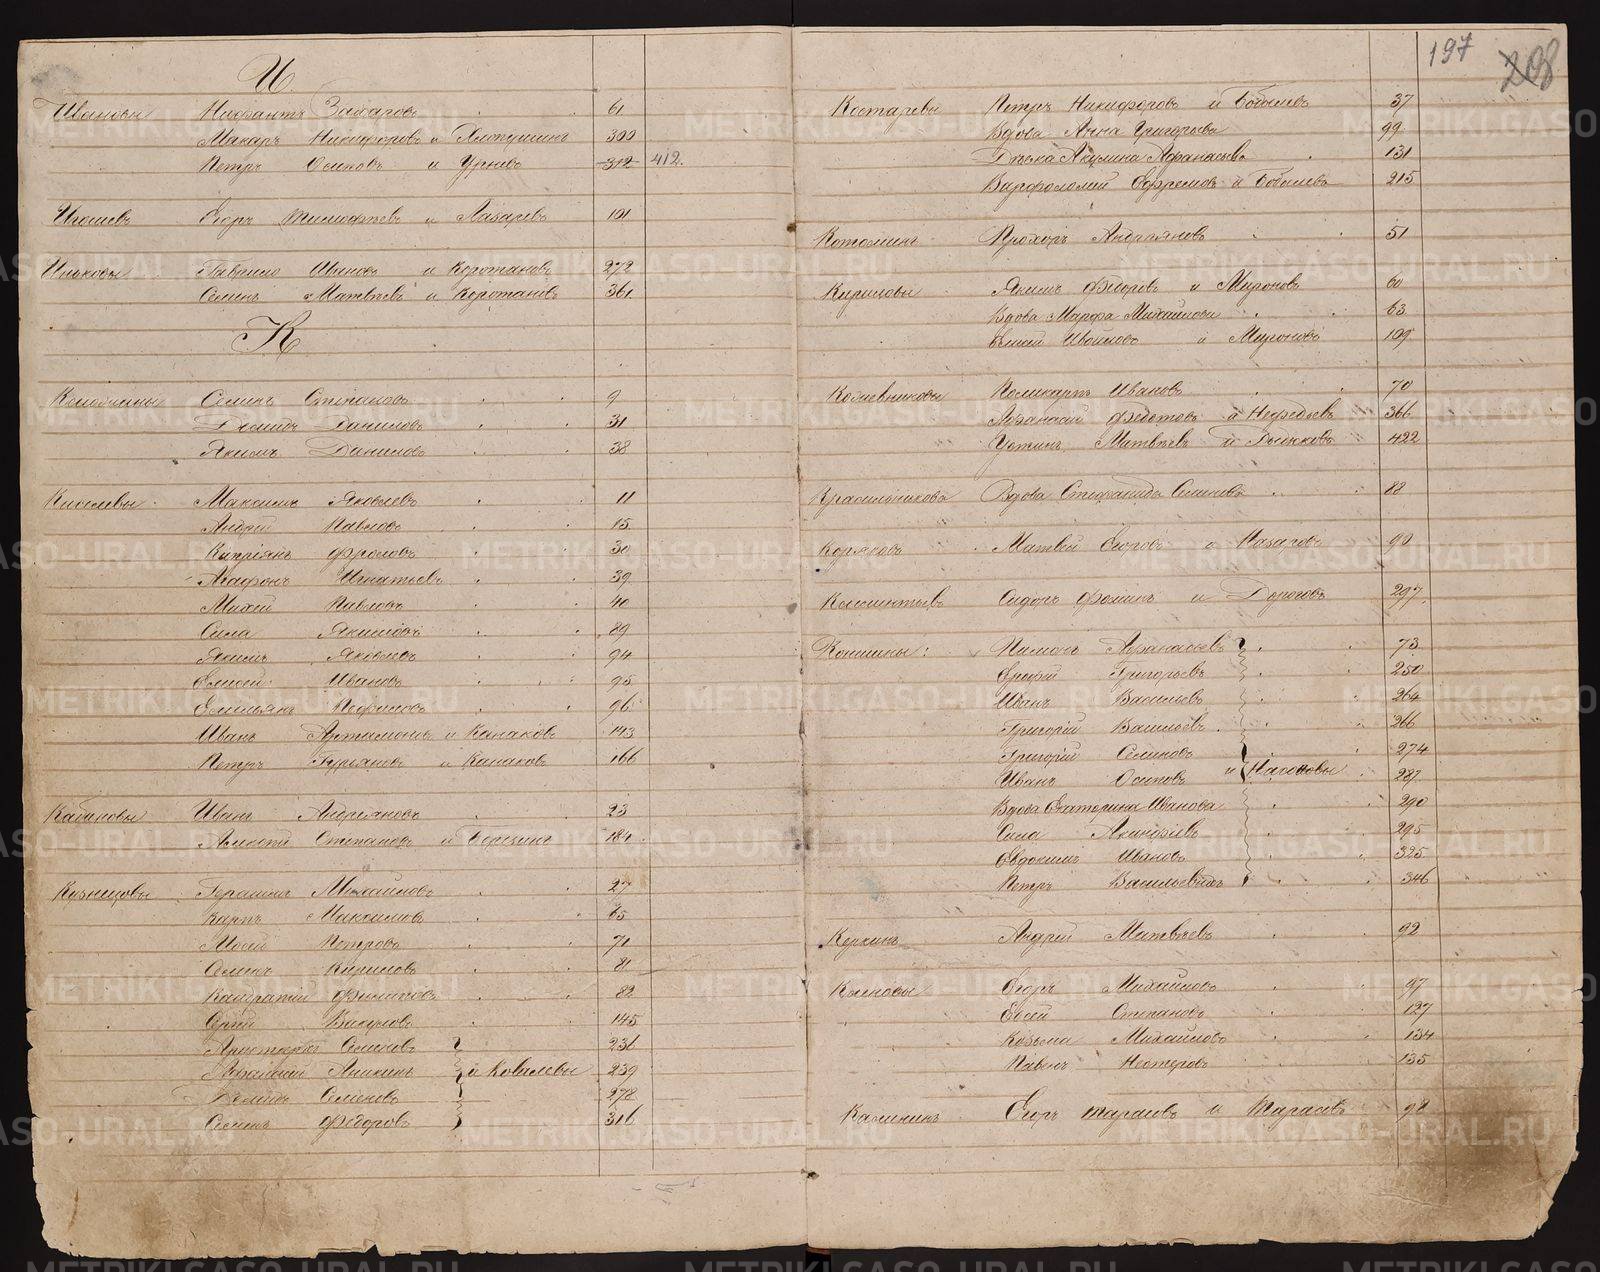 И.
Ивановы Неофантъ Захаровъ 61
Макаръ Никифоровъ и 300
Петръ Осиповъ и 312 412.
Игошевъ Егоръ Тимофѣевъ и Лазаревъ 101
Ильковы Гаврило Ивановъ и Коротановъ 272
Семенъ Матвѣевъ и Коротановъ 361
К
Семенъ Степановъ 9
Демидъ Даниловъ 31
Якимъ Даниловъ 38
Киселевы Максимъ Яковлевъ 11
Андрей Павловъ 15
Кипріянъ Фроловъ 30
Агафонъ Игнатьевъ 39
Михей Павловъ 40
Сила Якимовъ 89
Якимъ Яковлевъ 94
Елисей Ивановъ 95
Емельянъ 96
Иванъ Артамоновъ и Канаковъ 143
Петръ Гурьяновъ и Канаковъ 166
Кабановы Иванъ Андреяновъ 23
Степановъ и Березинъ 184
Кузнецовы Герасимъ Михайловъ 27
Карпъ Максимовъ 65
Моисей Петровъ 71
Семенъ Кириловъ 81
Филиповъ 82
Сергей Викуловъ 145
Семеновъ 236
Афанасій Аникинъ и Ковалевы 239
Демидъ Семеновъ 278
Семенъ Федоровъ 316
197 208
Костаревы Петръ Никифоровъ и Бобылевъ 37
Вдова Анна Григорьева 99
Дѣвка Акулина Афанасьева 131
Варфоломей Ефремовъ и Бобылевъ 215
Прохоръ Андреяновъ 51
Кириловы Якимъ Федоровъ и Мироновъ 60
Вдова Марфа Михайлова 63
Ивановъ и Мироновъ 109
Кожевниковы Поликарпъ Ивановъ 70
Афанасій Федотовъ и Нефедьевъ 366
Устинъ Матвѣевъ и 422
Красильникова Вдова Степанида Семенова 88
Коряковъ Матвей Егоровъ и Назаровъ 90
Клементьевъ Сидоръ Фоминъ и Дороговъ 297
Конины: Пименъ Афанасьевъ 73
Ерофей Григорьевъ 250
Иванъ Васильевъ 264
Григорій Васильевъ 266
Григорій Семеновъ 274
Иванъ Осиповъ и Нагоновы 287
Вдова Екатерина Иванова 290
Сила Акинфіевъ 295
Евдокимъ Ивановъ 325
Петръ Васильевъ 346
Керкинъ Андрей Матвѣевъ 92
Клековы Егоръ Михайловъ 97
Евсей Степановъ 127
Козьма Михайловъ 134
Павелъ Нестеровъ 135
Калининъ Егоръ Тарасовъ и Тарасовъ 98